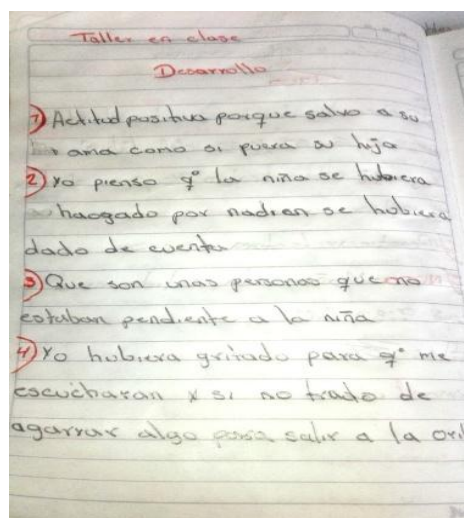 Taller en clase
Desarrollo
1) Actitud positiva porque salvo a su
ana como si puera su hija
2) Yo pienso q° la niña se hubiera
haogado por nadien se hubiera
dado de cuenta
3) Que son unas personas que no
estaban pendiente a la niña
4) Yo hubiera gritado para q° me
escucharan y si no trado de
agarrar algo para salir a la oril